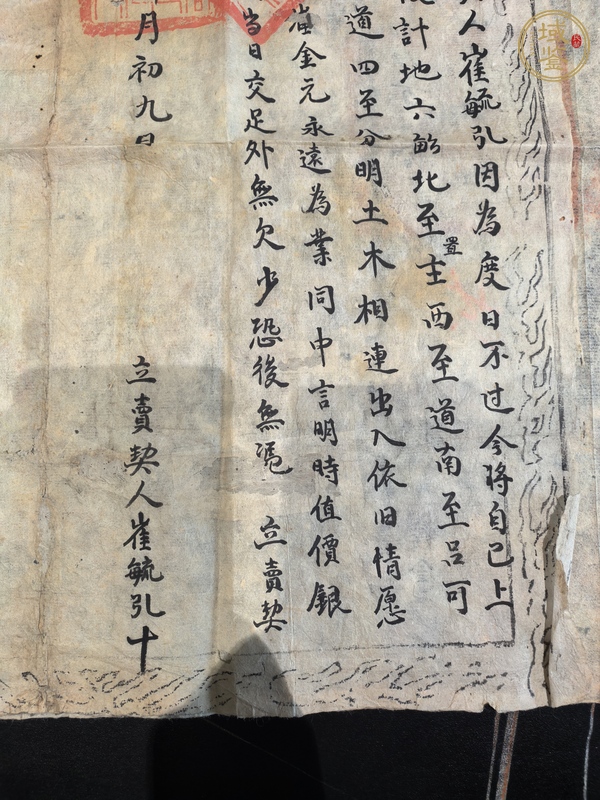 人崔毓引因為度日不过今将自己上
計地六畝北至主置西至道南至呂可
道四至分明土木相連出入依旧情愿
崔金元永遠為業同中言明時值價銀
当日交足外無欠少恐後無凴　立賣契
月初九日
立賣契人崔毓引十